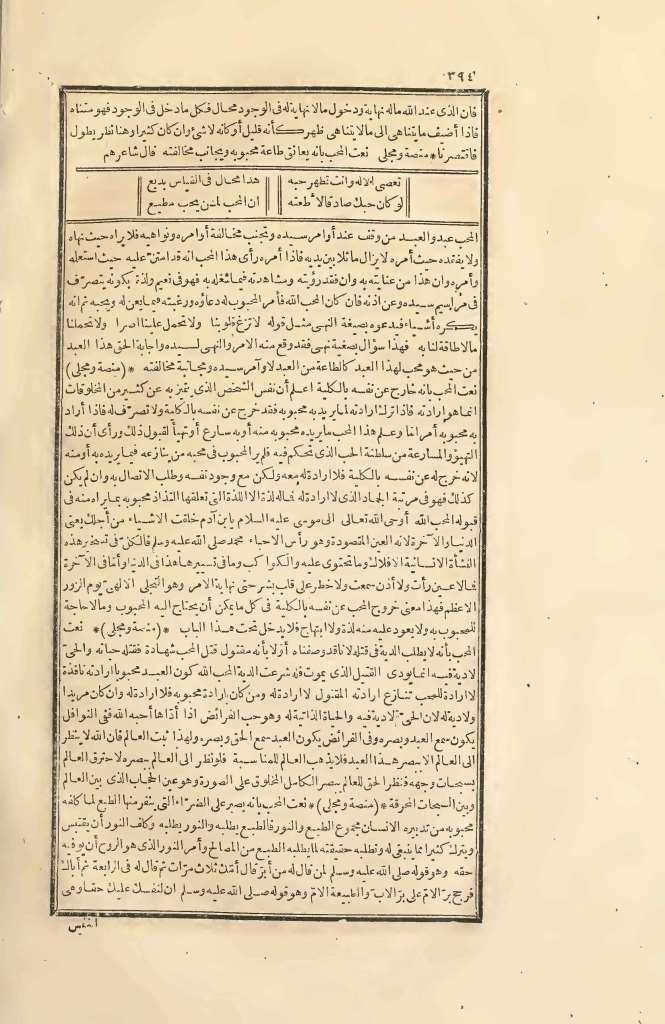 ٣٩٤
فان الذى عند الله ماله نهاية ودخول مالانهاية له فى الوجود محال فكل مادخل فى الوجود فهو متناه
فاذا أضيف مايتناهى الى مالايتناهى ظهر كأنه قليل أو كانه لاشئ وان كان كثيرا وهنا نظر يطول
فاقتصرنا * منصة ومجلى نعت المحب بانه يعانق طاعة محبوبه ويجانب مخالفته قال شاعرهم
تعصى الاله وأنت تظهر حبه هذا محال فى القياس بديع
لو كان حبك صادقا لأطعته ان المحب لمن يحب مطيع
المحب عبد والعبد من وقف عند أوامر سيده وتجنب مخالفة أوامره ونواهيه فلا يراه حيث نهاه
ولا يفقده حيث أمره لا يزال ماثلا بين يديه فاذا أمره رأى هذا المحب انه قد امتن عليه حيث استعمله
وأمره وان هذا من عنايته به وان فقد رؤيته ومشاهدته فيما شغله به فهو فى نعيم ولذة بكونه يتصرف
فى مراسيم سيده وعن اذنه فان كان المحب الله فأمر المحبوب له دعاؤه ورغبته فيما يعن له ويحبه ثم انه
يكره أشياء فيدعوه بصيغة النهى مثل قوله لا تزغ قلوبنا ولا تحمل علينا اصرا ولا تحملنا
مالا طاقة لنا به فهذا سؤال بصيغة نهى فقد وقع منه الامر والنهى لسيده واجابة الحق هذا العبد
من حيث هو محب لهذا العبد كالطاعة من العبد لاوامر سيده ومجانبة مخالفته * (منصة ومجلى)
نعت المحب بانه خارج عن نفسه بالكلية اعلم أن نفس الشخص الذى يتميز به عن كثير من المخلوقات
انما هو ارادته فاذا ترك ارادته لما يريد به محبوبه فقد خرج عن نفسه بالكلية ولا تصرف له فاذا أراد
به محبوبه أمراما وعلم هذا المحب مايريده محبوبه منه أو به سارع أوتهيأ لقبول ذلك ورأى أن ذلك
التهيؤ والمسارعة من سلطنة الحب الذى تحكم فيه فلم ير المحبوب فى محبه من ينازعه فيما يريده به أو منه
لانه خرج له عن نفسه بالكلية فلا ارادة له معه ولكن مع وجود نفسه وطلب الاتصال به وان لم يكن
كذلك فهو فى مرتبة الجماد الذى لا ارادة له فماله لذة الا اللذة التى تعلقها التذاذ محبوبه بما يراه منه فى
قبوله المحب الله أوحى الله تعالى الى موسى عليه السلام يا ابن آدم خلقت الاشياء من أجلك يعنى
الدنيا والآخرة لانه العين المقصودة وهو رأس الاحباء محمد صلى الله عليه وسلم فالكل فى تسخير هذه
النشأة الانسانية الافلاك وما تحتوى عليه والكواكب وما فى تسييرها هذا فى الدنيا وأما فى الآخرة
فما لا عين رأت ولا أذن سمعت ولا خطر على قلب بشر حتى نهاية الامر وهو التجلى الالهى يوم الزور
الاعظم فهذا معنى خروج المحب عن نفسه بالكلية فى كل ما يمكن أن يحتاج اليه المحبوب ومالا حاجة
للمحبوب به ولا يعود عليه منه لذة ولا ابتهاج فلا يدخل تحت هذا الباب * (منصة ومجلى) * نعت
المحب بأنه لا يطلب الدية فى قتله لانا قد وصفناه أولا بأنه مقتول قتل المحب شهادة فقتله حياته والحى
لادية فيه انما يودى القتيل الذى يموت فله شرعت الدية المحب الله كون العبد محبوبا ارادته نافذة
لا ارادة للمحب تنازع ارادته المقتول لا ارادة له ومن كان ارادة محبوبه فلا ارادة له وان كان مريدا
ولادية له لان الحى لادية فيه والحياة الذاتية له وهو حب الفرائض اذا أداها أحبه الله ففى النوافل
يكون سمع العبد وبصره وفى الفرائض يكون العبد سمع الحق وبصره ولهذا ثبت العالم فان الله لا ينظر
الى العالم الا ببصر هذا العبد فلا يذهب العالم للمناسبة فلو نظر الى العالم ببصره لاحترق العالم
بسبحات وجهه فنظر الحق للعالم ببصر الكامل المخلوق على الصورة وهو عين الحجاب الذى بين العالم
وبين السبحات المحرقة * (منصة ومجلى) * نعت المحب بانه يصبر على الضراء التى ينفر منها الطبع لما كلفه
محبوبه من تدبيره الانسان مجموع الطبع والنور فالطبع يطلبه والنور يطلبه وكلف النور أن يقتبس
ويترك كثيرا مما ينبغى له وتطلبه حقيقته لما يطلبه الطبع من المصالح وأمر النور الذى هو الروح أن يوفيه
حقه وهو قوله صلى الله عليه وسلم لمن قال له من أبر قال أمك ثلاث مرات ثم قال له فى الرابعة ثم أباك
فرجح بر الام على بر الاب والطبيعة الام وهو قوله صلى الله عليه وسلم ان لنفسك عليك حقا وهى